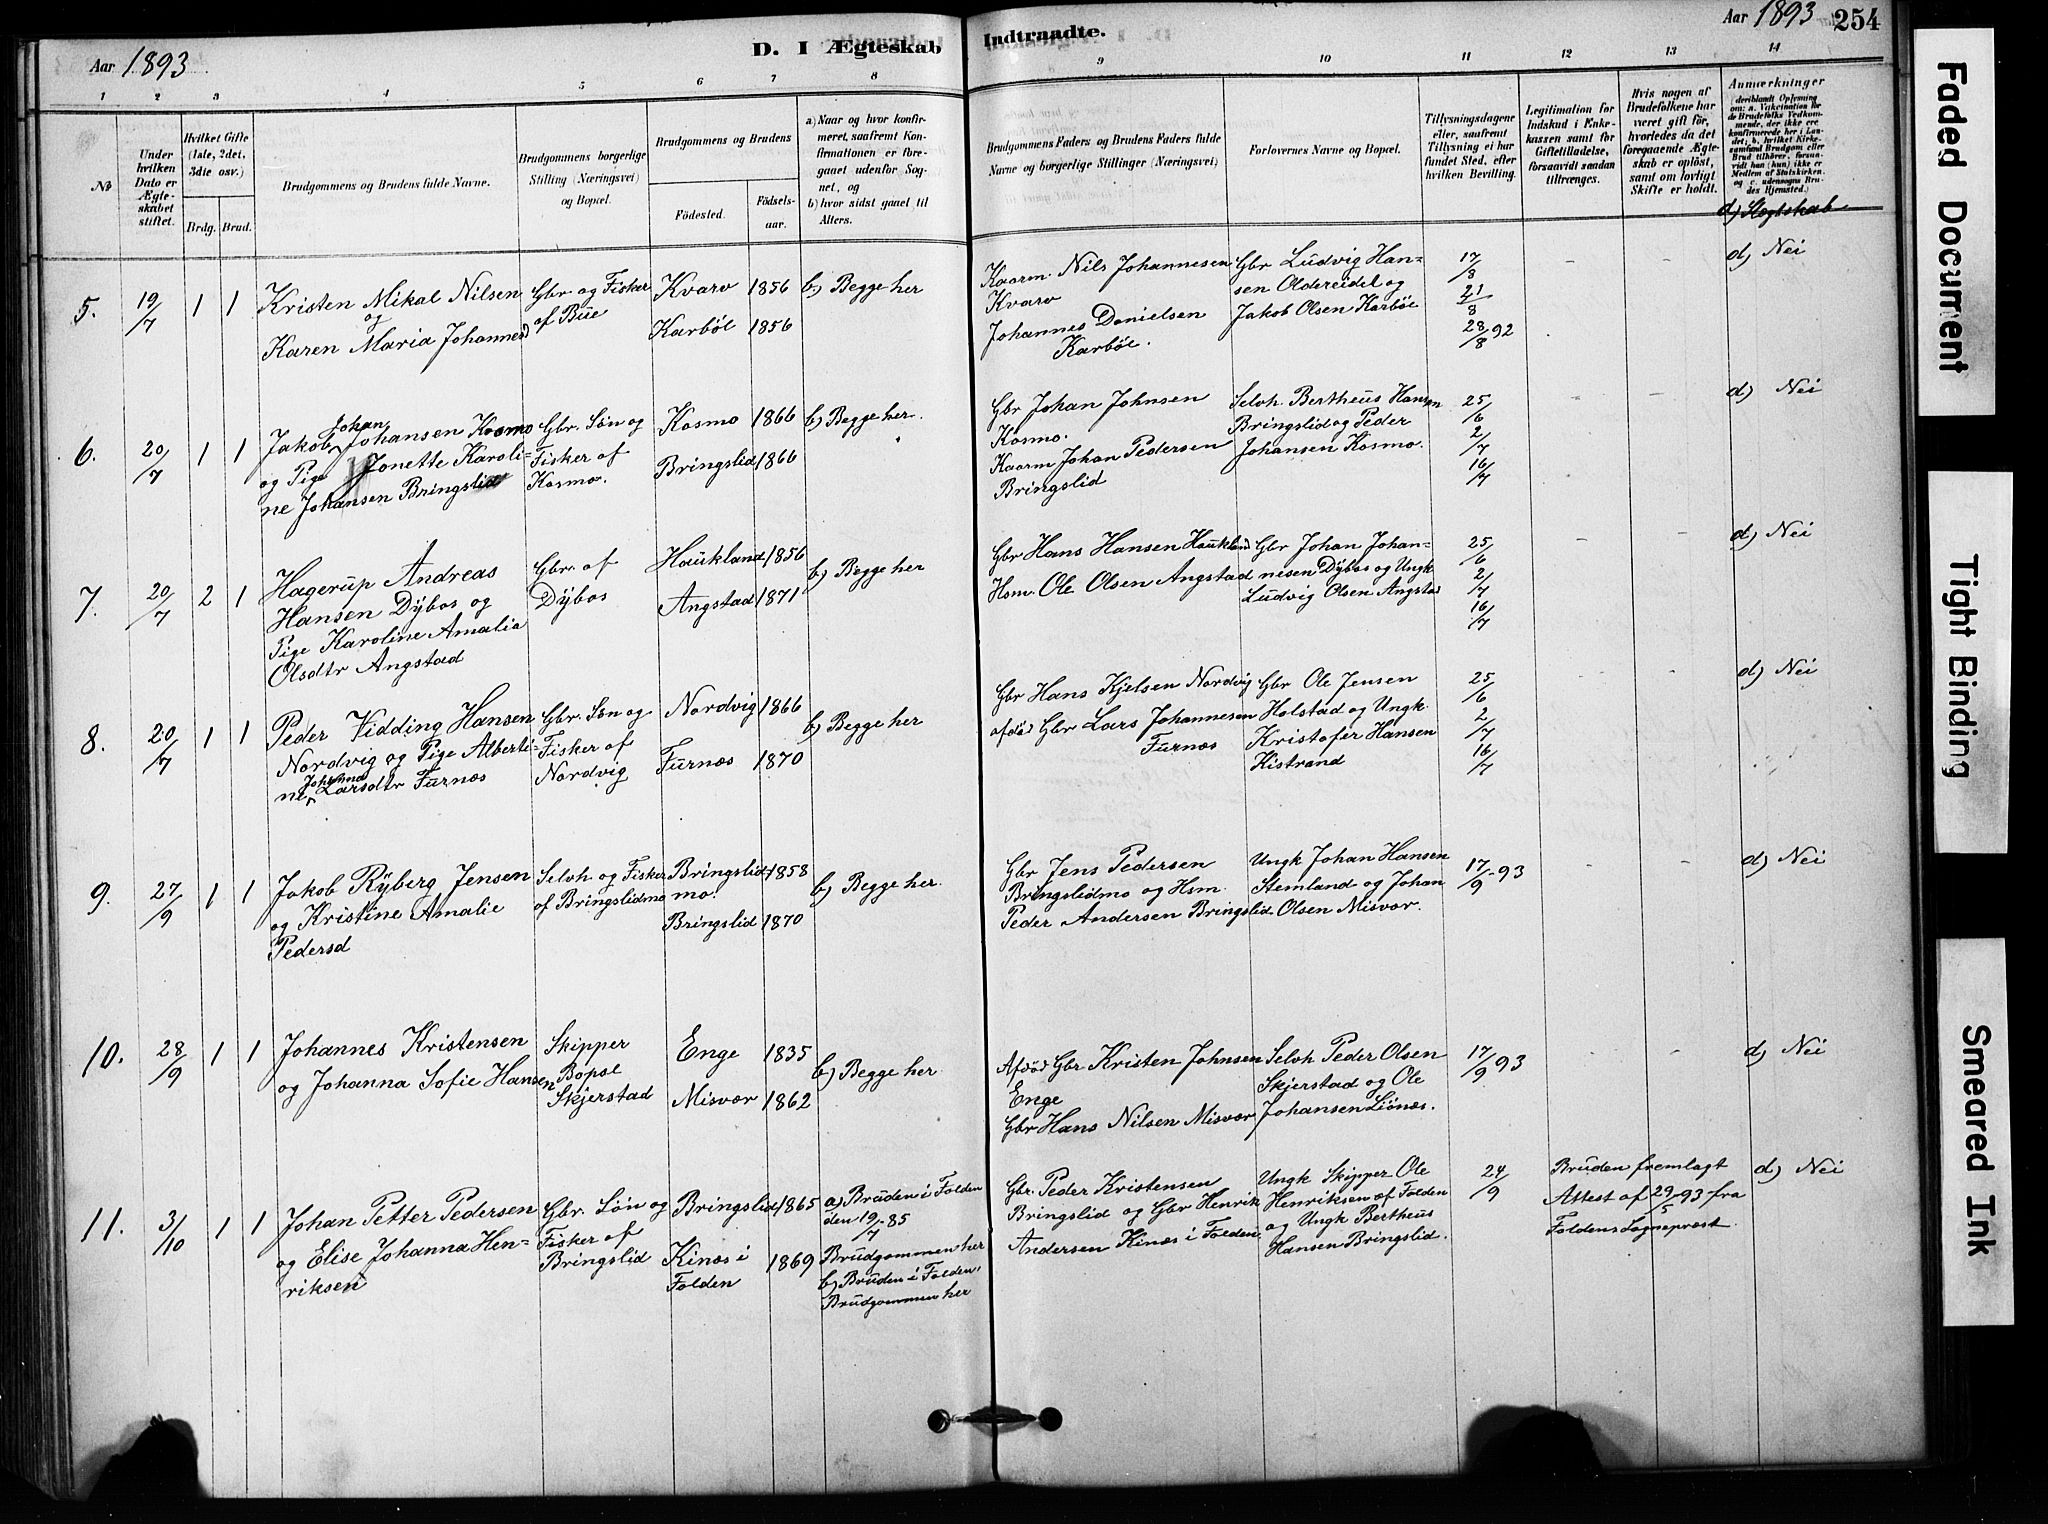 Aar 1893
D. I Ægteskab
Indtraadte.
Aar 1893
254
1 2 3 4 5 6 7 8 9 10 11 12 13 14
No
Under hvilken Dato er Ægteskabet stiftet.
Hvilket Gifte (1ste, 2det, 3die osv.)
Brdg. Brud.
Brudgommens og Brudens fulde Navne.
Brudgommens borgerlige Stilling (Næringsvei) og Bopæl.
Brudgommens og Brudens
Födested.
Födselsaar.
a) Naar og hvor konfirmeret, saafremt Konfirmationen er foregaaet udenfor Sognet, og
b) hvor sidst gaaet til Alters.
Brudgommens Faders og Brudens Faders fulde Navne og borgerlige Stillinger (Næringsvei)
Forlovernes Navne og Bopæl.
Tillysningsdagene eller, saafremt Tillysning ei har fundet Sted, efter hvilken Bevilling.
Legitimation for Indskud i Enkekassen samt for Giftetilladelse, forsaavidt saadan tiltrænges.
Hvis nogen af Brudefolkene har været gift för, hvorledes da det foregaaende Ægteskab er oplöst, samt om lovligt Skifte er holdt.
Anmærkninger
(deriblandt Oplysning om: a. Vaccination for de Brudefolks Vedkommende, der ikke ere konfirmerede her i Landet; b. hvilket Kirkesamfund Brudgom eller Brud tilhörer, forsaavidt han (hun) ikke er Medlem af Statskirken. og c. udensogns Brudes Hjemsted.)
d) Slægtskab
5.
19/7
1
1
Kristen Mikal Nilsen
og
Karen Maria Johannesd
Gbr og Fisker
af Bue
Kvarv 1856
Karböl 1856
b) Begge her
Kaarm. Nils Johannesen
Kvarv
Johannes Danielsen
Karböl.
Gbr Ludvig Han=
sen Oldereidel og
Jakob Olsen Karböl
17/8
21/8
28/8 92
d) Nei
6.
20/7
1
1
Johan
Jakob Johansen Kosmo
og Pige Jonette Karoli=
ne Johansen Bringslid
Gbr. Sön og
Fisker af
Kosmo.
Kosmo 1866
Bringslid 1866
b) Begge her.
Gbr Johan Johnsen
Kosmo.
Kaarm Johan Pedersen
Bringslid
Selvh. Bertheus Hansen
Bringslid og Peder
Johansen Kosmo.
25/6
2/7
16/7
d) Nei
7.
20/7
2
1
Hagerup Andreas
Hansen Dybos og
Pige Karoline Amalia
Olsdtr Angstad
Gbr. af
Dybos
Haukland 1856
Angstad 1871
b) Begge her
Gbr Hans Hansen Haukland
Hsm. Ole Olsen Angstad
Gbr Johan Johan=
nesen Dybos og Ungk
Ludvig Olsen Angstad
25/6
2/7
16/7
d) Nei
8.
20/7
1
1
Peder Vidding Hansen
Nordvig og Pige Alberti=
Johanna
ne Larsdtr Furnæs
Gbr. Sön og
Fisker af
Nordvig
Nordvig 1866
Furnæs 1870
b) Begge her
Gbr Hans Kjelsen Nordvig
afdö Gbr Lars Johannesen
Furnæs
Gbr Ole Jensen
Holstad og Ungk.
Kristofer Hansen
Kistrand
25/6
2/7
16/7
d) Nei
9.
27/9
1
1
Jakob Ryberg Jensen
og Kristine Amalie
Pedersd
Selvh og Fisker
af Bringslidmo
Bringslid- 1858
mo.
Bringslid 1870
b) Begge her.
Gbr Jens Pedersen
Bringslidmo og Hsm.
Peder Andersen Bringslid
Ungk Johan Hansen
Stemland og Johan
Olsen Misvær.
17/9 -93
d) Nei
10.
28/9
1
1
Johannes Kristensen
og Johanna Sofie Hansen
Skipper
Bopæl
Skjerstad
Enge 1835
Misvær 1862
b) Begge her
Afdöd Gbr Kristen Johnsen
Enge
Gbr Hans Nilsen Misvær
Selvh Peder Olsen
Skjerstad og Ole
Johansen Liönæs.
17/9 93
d) Nei
11.
3/10
1
1
Johan Petter Pedersen
og Elise Johanna Hen=
riksen
Gbr. Sön og
Fisker af
Bringslid
Bringslid 1865
Kinæs i 1869
Folden
a) Bruden i Folden
den 19/7-85
Brudgommen her
b) Bruden i Folden,
Brudgommen her
Gbr. Peder Kristensen
Bringslid og Gbr Henrik
Andersen Kinæs i Folden
Ungk Skipper Ole
Henriksen af Folden
og Ungk Bertheus
Hansen Bringslid.
24/9
Bruden fremlagt
Attest af 29/5-93 fra
Foldens Sognepræst.
d) Nei
Faded Document
Tight Binding
Smeared Ink